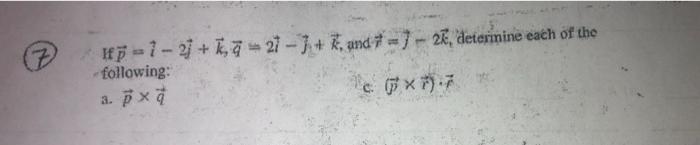 7
If p⃗ = i⃗ − 2j⃗ + k⃗, q⃗ = 2i⃗ − j⃗ + k⃗, and r⃗ = j⃗ − 2k⃗, determine each of the
following:
a. p⃗ × q⃗
c. (p⃗ × r⃗)·r⃗